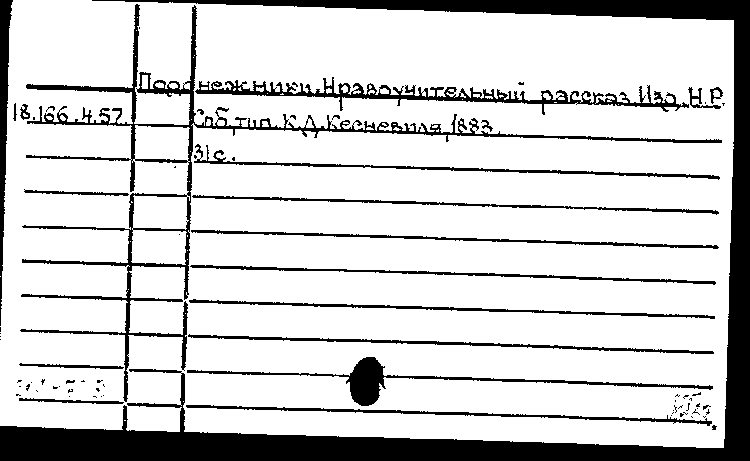 Подснежники. Нравоучительный рассказ. Изд. Н.Р.
18.166.4.57.
Спб, тип. К.Д. Кесневиля, 1883.
31с.